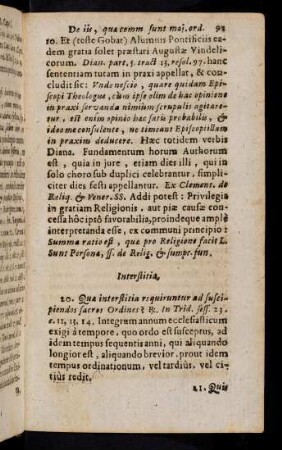 De iis, quæ comm funt maj. ord. 91
ro. Et (teſte Gobat) Alumnis Pontificiis ea-
dem gratia ſolet præſtari Auguſtæ Vindeli-
corum. Dian. part. 5. tract 13. reſol. 97. hanc
ſententiam tutam in praxi appellat, & con-
cludit ſic: Unde neſcio, quare quidam Epi-
ſcopi Theologus, cùm ipſo olim de hac opinione
in praxi ſervanda nimiùm ſcrupulis agitare-
tur, eſt enim opinio hæc ſatis probabilis, &
ideo me conſulente, ne timeant Epiſcopi illam
in praxim deducere. Hæc totidem verbis
Diana. Fundamentum horum Authorum
eſt, quia in jure, etiam dies illi, qui in
ſolo choro ſub duplici celebrantur, ſimpli-
citer dies feſti appellantur. Ex Clement. de
Reliq. & Vener. SS. Addi poteſt: Privilegia
in gratiam Religionis, aut piæ cauſæ con-
ceſſa hôc ipſô favorabilia, proindeque amplè
interpretanda eſſe, ex communi principio:
Summa ratio eſt, quæ pro Religione facit L.
Sunt Perſonæ, ff. de Relig. & ſumpt. fun.
Interſtitia,
20. Quæ interſtitia requiruntur ad ſuſci-
piendos ſacros Ordines? R. In Trid. ſeſſ. 23.
c. 11, 13, 14. Integrum annum eccleſiaſticum
exigi à tempore, quo ordo eſt ſuſceptus, ad
idem tempus ſequentis anni, qui aliquando
longior eſt, aliquando brevior, prout idem
tempus ordinationum, vel tardiùs, vel ci-
tiùs redit.
21. Quis